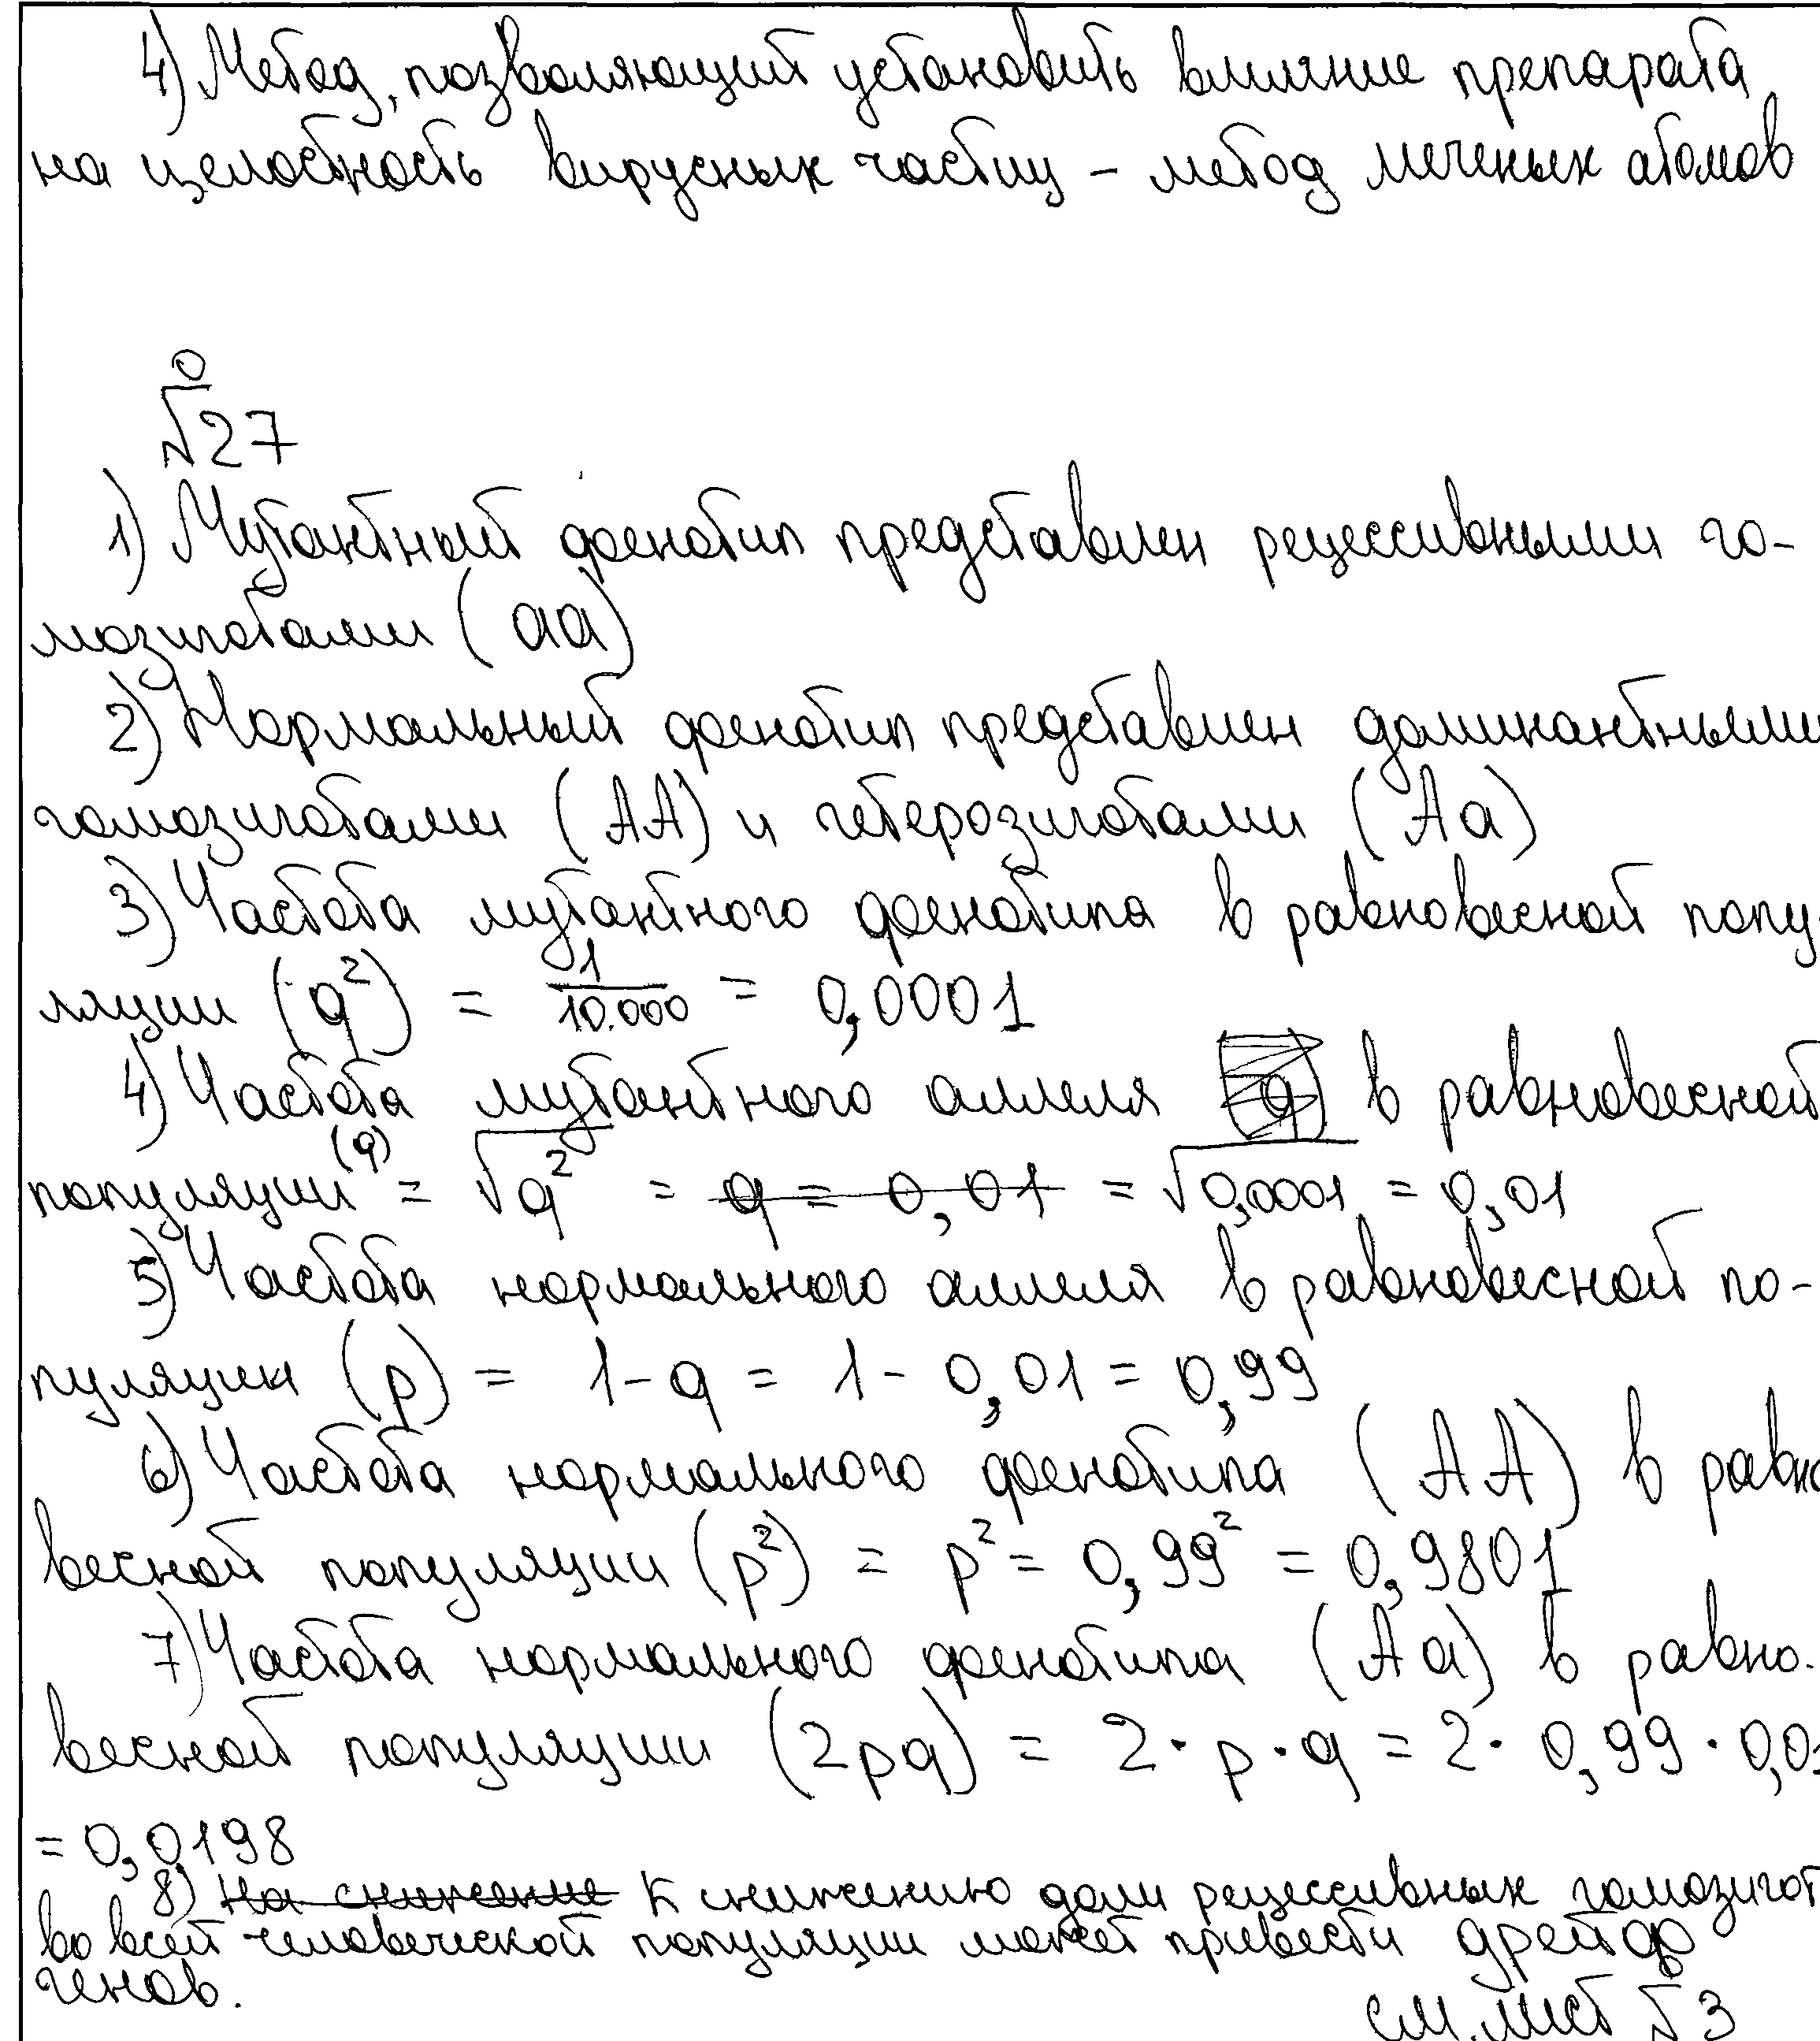 4) Метод, позволяющий установить влияние препарата
на целостность вирусных частиц – метод меченых атомов
№27
1) Мутантный фенотип представлен рецессивными го-
мозиготами (aa)
2) Нормальный фенотип представлен доминантными
гомозиготами (AA) и гетерозиготами (Aa)
3) Частота мутантного фенотипа в равновесной попу-
ляции (q²) = 1/10.000 = 0,0001
4) Частота мутантного аллеля в равновесной
популяции (q) = √q² = q = 0,01 = √0,0001 = 0,01
5) Частота нормального аллеля в равновесной по-
пуляции (p) = 1 - q = 1 - 0,01 = 0,99
6) Частота нормального фенотипа (AA) в равно
весной популяции (p²) = p² = 0,99² = 0,9801
7) Частота нормального фенотипа (Aa) в равно-
весной популяции (2pq) = 2·p·q = 2·0,99·0,01
= 0,0198
8) На снижение К снижению доли рецессивных гомозигот
во всей человеческой популяции может привести дрейф
генов.
см. лист №3